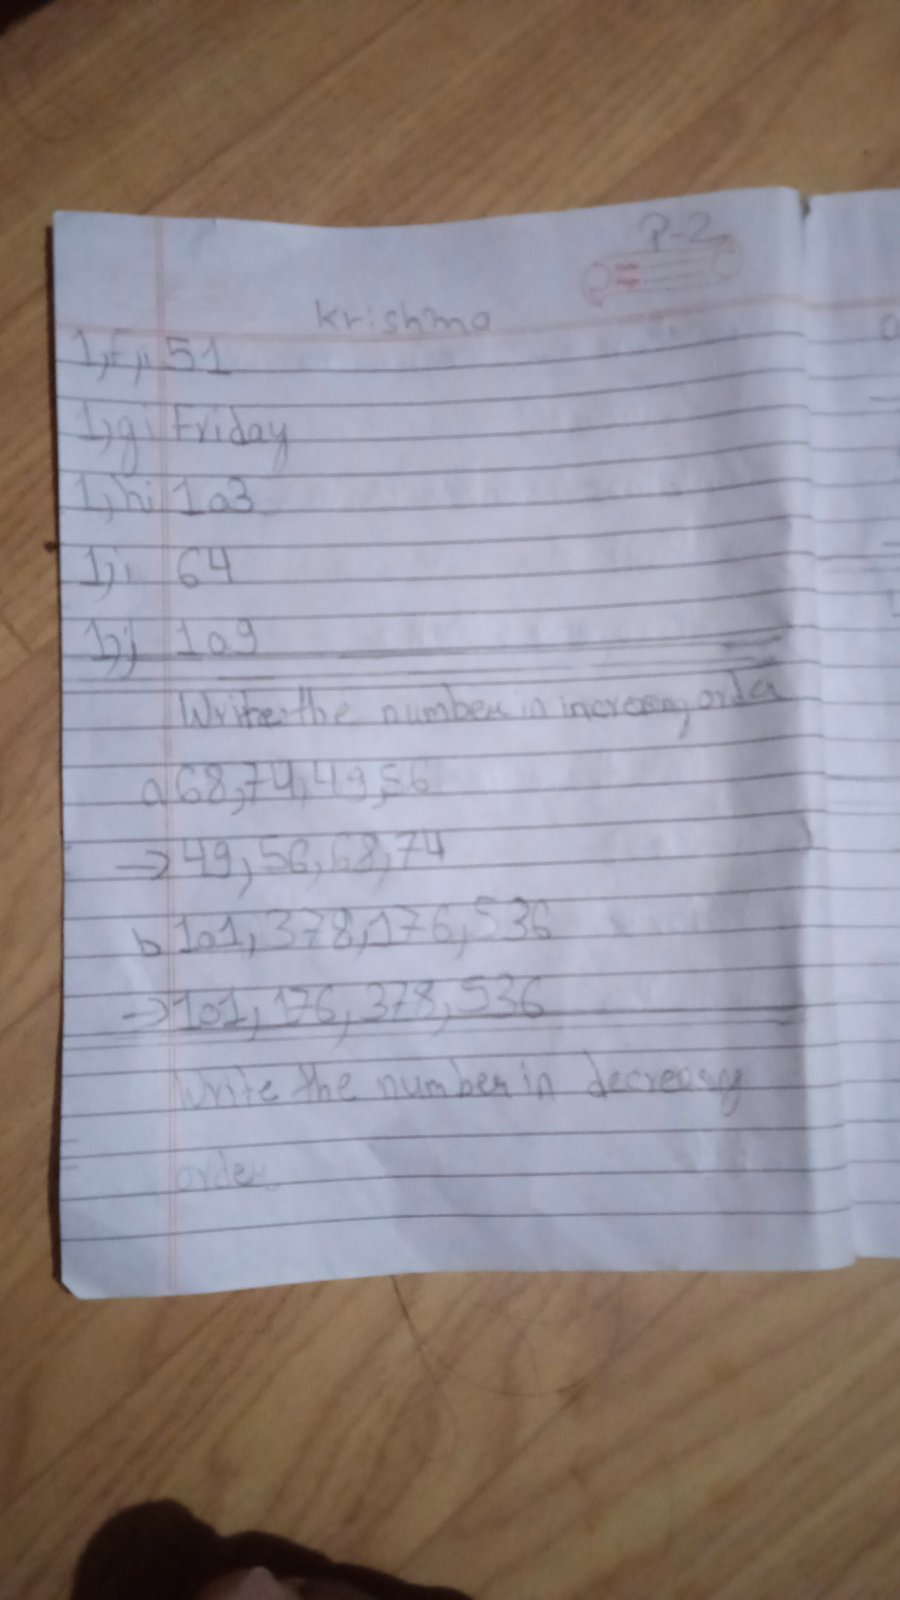 P-2
Krishma
1,f, 51
1,gi Friday
1,hi 103
1,i 64
1,j 109
Write the number in increasing order
a 68,74,49,56
→ 49,56,68,74
b 101,378,176,536
→ 101,176,378,536
Write the number in decreasing
order